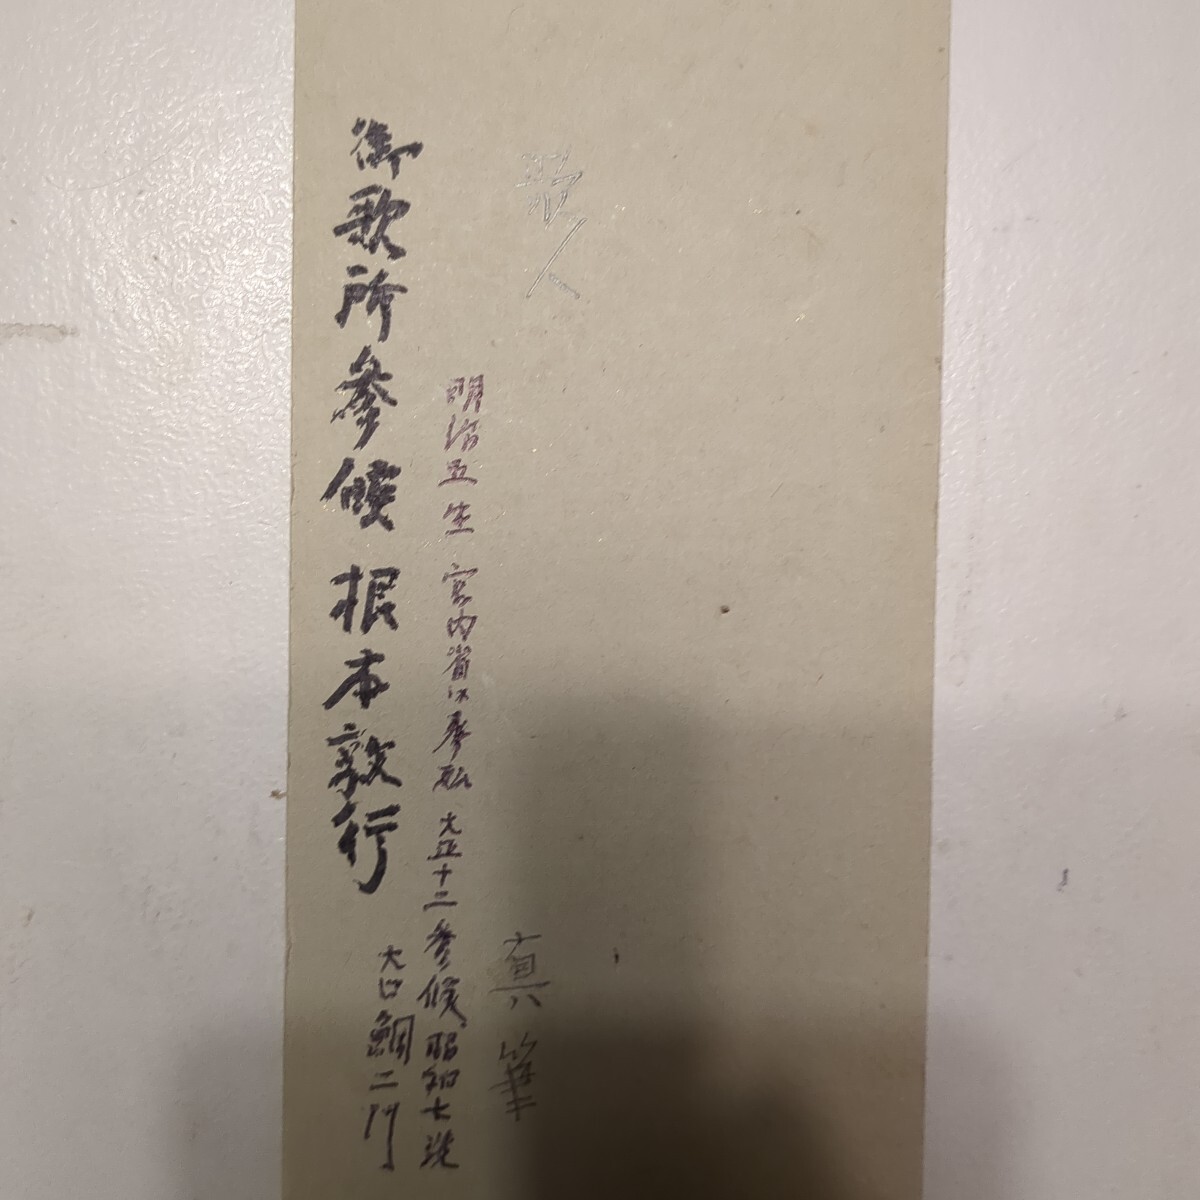 歌人
真筆
明治五生 宮内省に奉職 大正十二参候 昭和七逝
御歌所参候 根本敦行
大口鯛二門